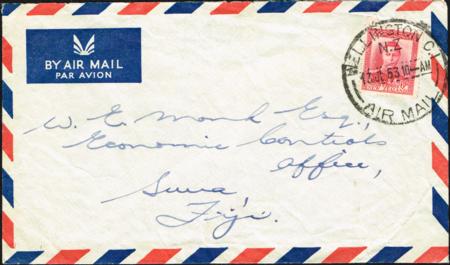 BY AIR MAIL
PAR AVION
WELLINGTON C.
N.Z
53.10-AM
AIR MAIL
W. E. Monk Esq.,
Economic Controls
Office,
Suva,
Fiji.